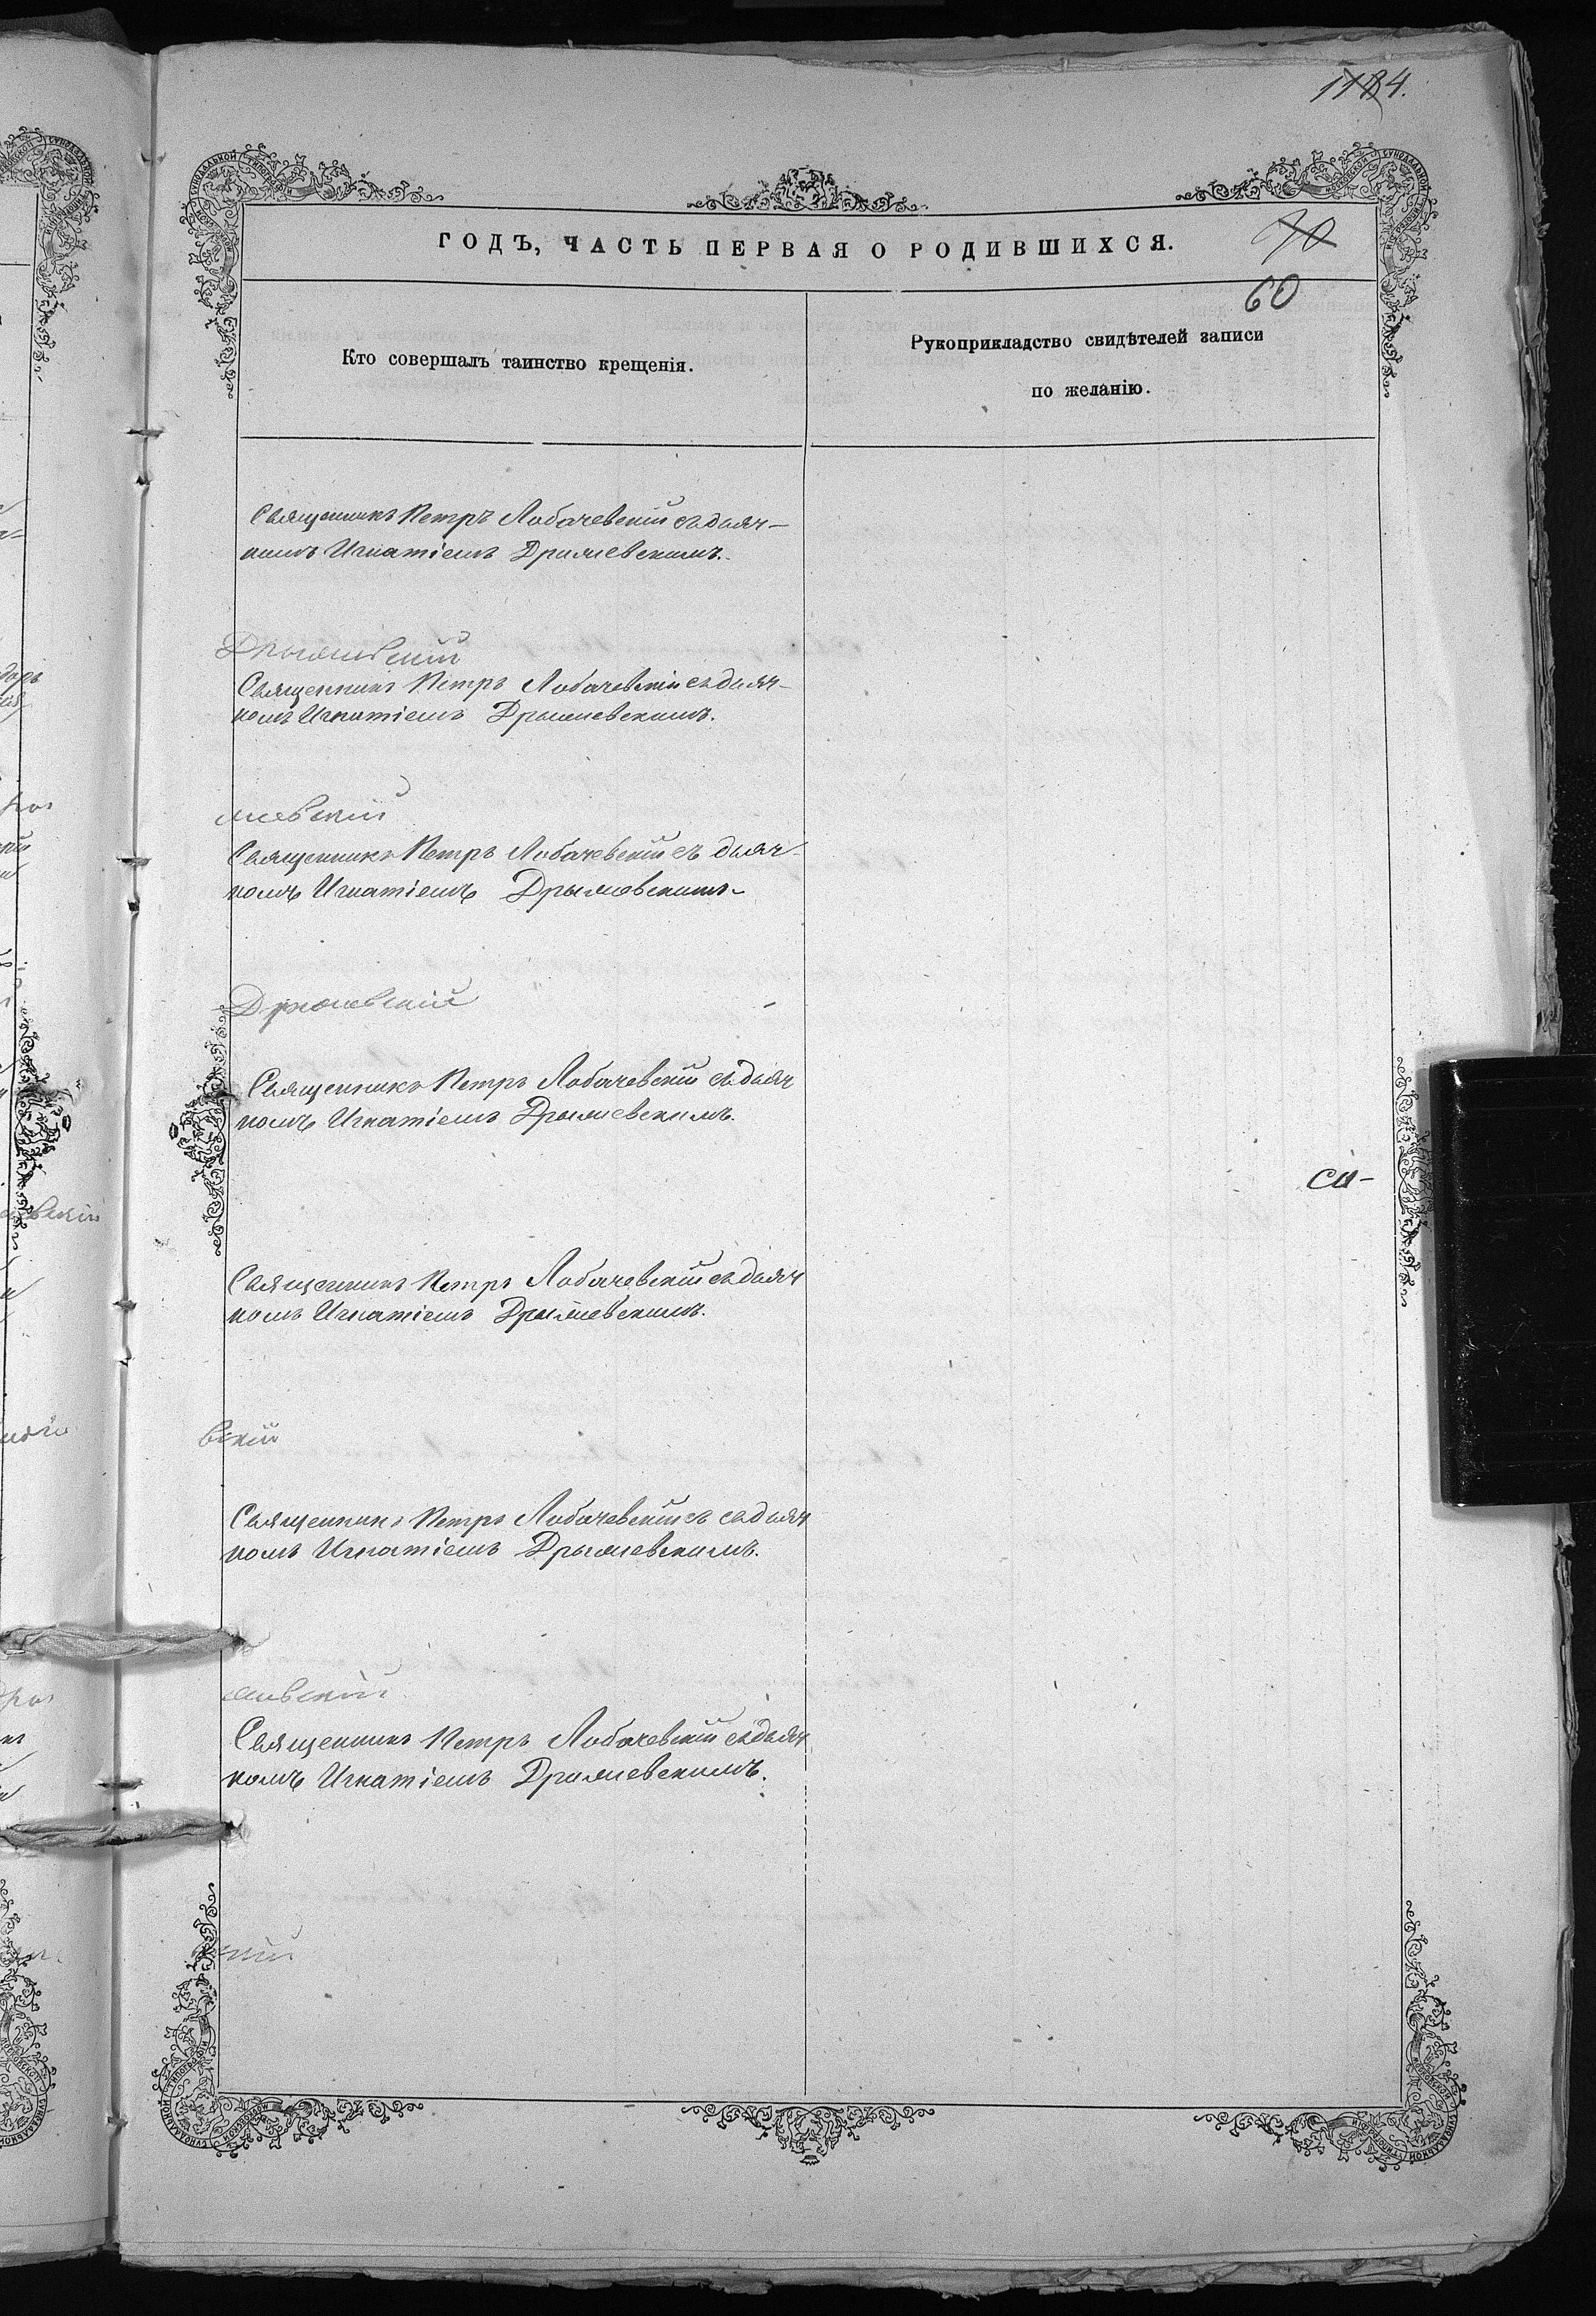 ГОДЪ, ЧАСТЬ ПЕРВАЯ О РОДИВШИХСЯ.
60
Кто совершалъ таинство крещенія.
Рукоприкладство свидѣтелей записи
по желанію.
Священникъ Петръ Лобачевскій съ дьяч-
комъ Игнатіемъ Дрымевскимъ.
Священникъ Петръ Лобачевскій съ дьяч-
комъ Игнатіемъ Дрымевскимъ.
мевскій
Священникъ Петръ Лобачевскій съ дьяч-
комъ Игнатіемъ Дрымевскимъ
Священникъ Петръ Лобачевскій съ дьяч
комъ Игнатіемъ Дрымевскимъ.
Священникъ Петръ Лобачевскій съ дьяч
комъ Игнатіемъ Дрымевскимъ.
вскій
Священникъ Петръ Лобачевскій съ дьяч
комъ Игнатіемъ Дрымевскимъ.
Священникъ Петръ Лобачевскій съ дьяч
комъ Игнатіемъ Дрымевскимъ.